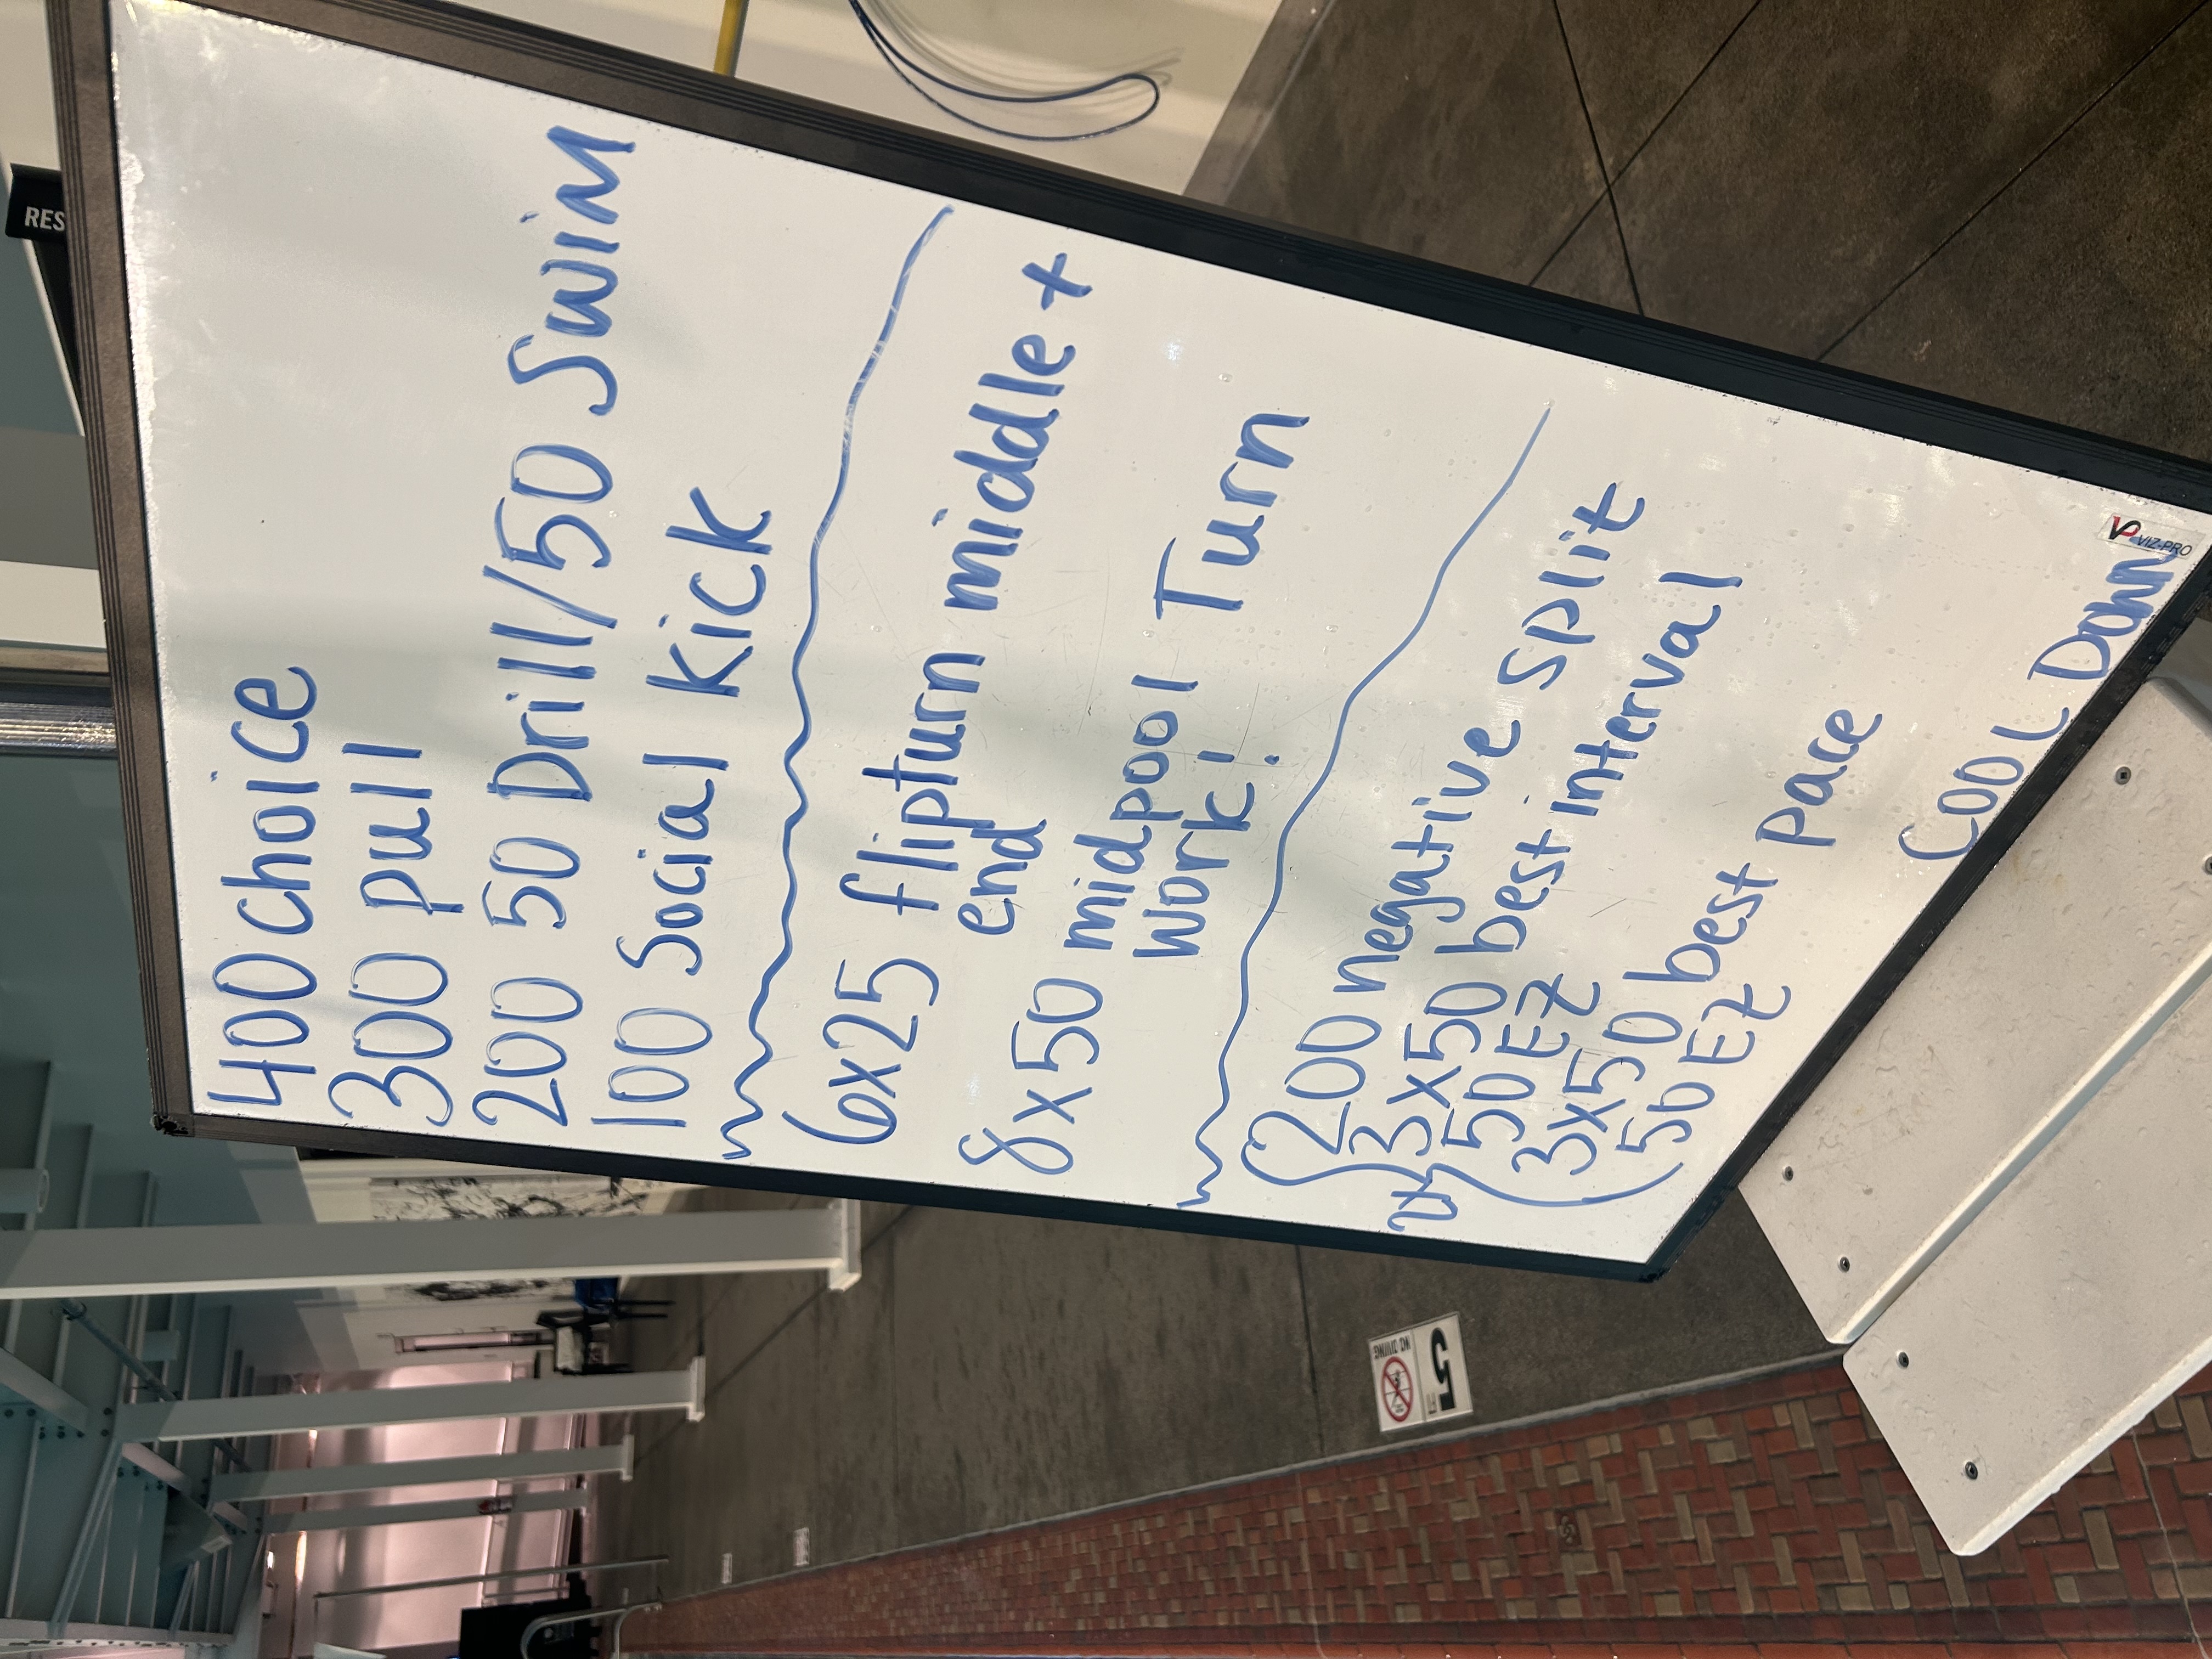 400 choice
300 pull
200 50 Drill/50 Swim
100 Social Kick
6x25 flipturn middle +
end
8x50 midpool Turn
Work!
200 negative split
3x50 best interval
2x
50 EZ
3x50 best pace
50 EZ
COOL Down
VP VIZ-PRO
RES
NO DIVING
5